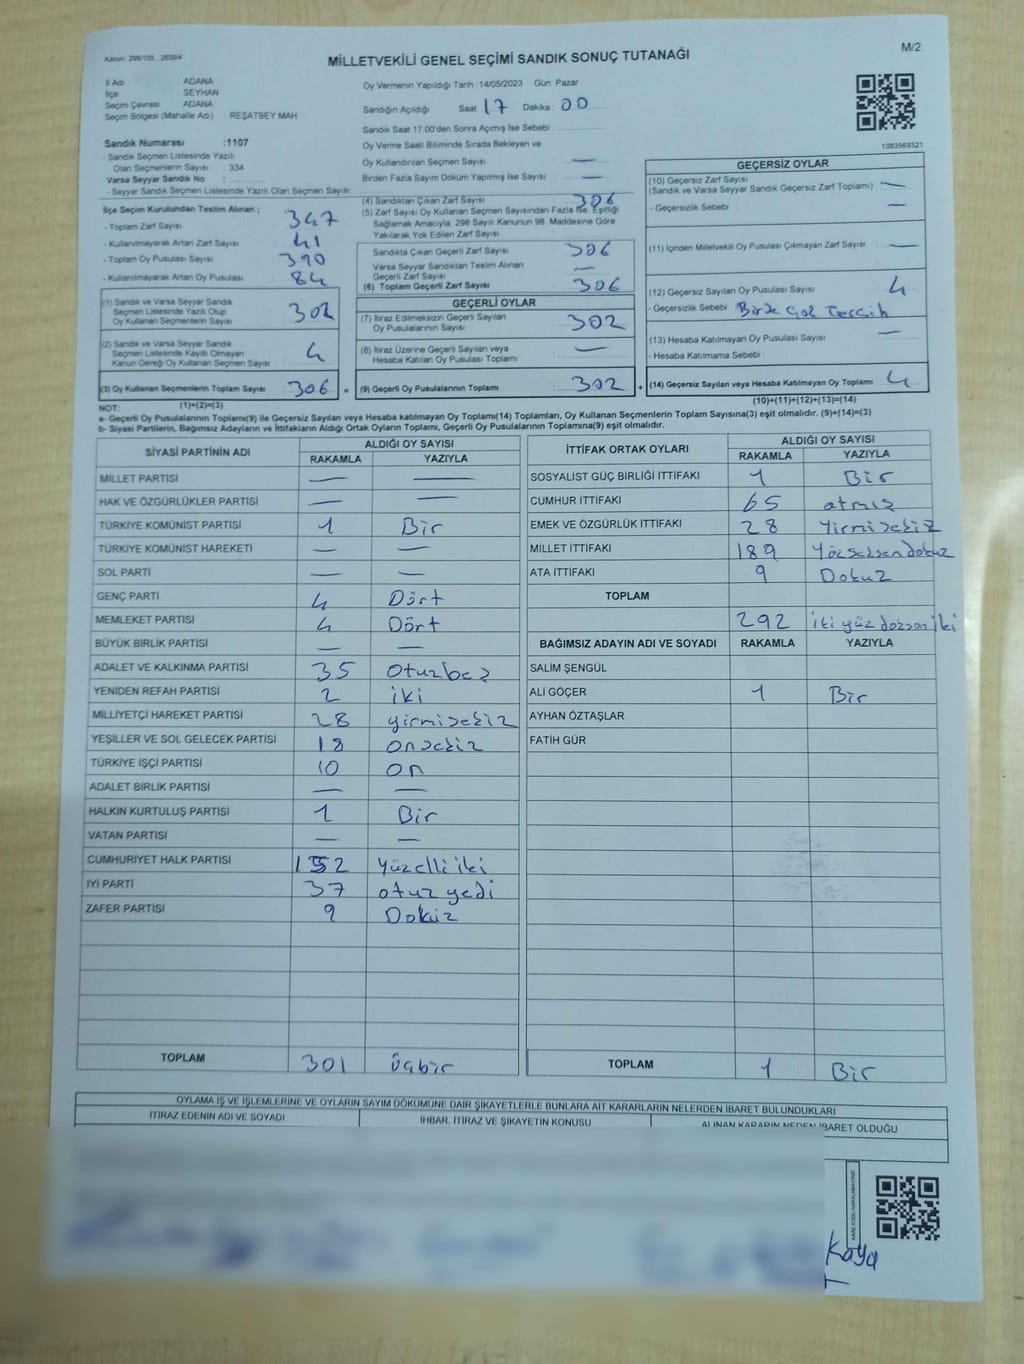 Kanun: 298/105 , 2839/4
MİLLETVEKİLİ GENEL SEÇİMİ SANDIK SONUÇ TUTANAĞI
M/2
İl Adı : ADANA
İlçe : SEYHAN
Seçim Çevresi : ADANA
Seçim Bölgesi (Mahalle Adı) : REŞATBEY MAH.
Oy Vermenin Yapıldığı Tarih :14/05/2023 Gün: Pazar
Sandığın Açıldığı Saat :17 Dakika : 00
Sandık Saat 17.00'den Sonra Açımış İse Sebebi :
Oy Verme Saati Bitiminde Sırada Bekleyen ve
Oy Kullandırılan Seçmen Sayısı : —
Birden Fazla Sayım Döküm Yapılmış İse Sayısı : —
1083569321
Sandık Numarası :1107
- Sandık Seçmen Listesinde Yazılı
Olan Seçmenlerin Sayısı : 334
Varsa Seyyar Sandık No :
- Seyyar Sandık Seçmen Listesinde Yazılı Olan Seçmen Sayısı:
İlçe Seçim Kurulundan Teslim Alınan ;
- Toplam Zarf Sayısı : 347
- Kullanılmayarak Artan Zarf Sayısı : 41
- Toplam Oy Pusulası Sayısı : 390
- Kullanılmayarak Artan Oy Pusulası : 84
(1) Sandık ve Varsa Seyyar Sandık
Seçmen Listesinde Yazılı Olup
Oy Kullanan Seçmenlerin Sayısı : 302
(2) Sandık ve Varsa Seyyar Sandık
Seçmen Listesinde Kayıtlı Olmayan
Kanun Gereği Oy Kullanan Seçmen Sayısı : 4
(3) Oy Kullanan Seçmenlerin Toplam Sayısı : 306 =
(1)+(2)=(3)
(4) Sandıktan Çıkan Zarf Sayısı : 306
(5) Zarf Sayısı Oy Kullanan Seçmen Sayısından Fazla İse, Eşitliği
Sağlamak Amacıyla, 298 Sayılı Kanunun 98. Maddesine Göre
Yakılarak Yok Edilen Zarf Sayısı :
Sandıkta Çıkan Geçerli Zarf Sayısı : 306
Varsa Seyyar Sandıktan Teslim Alınan
Geçerli Zarf Sayısı : —
(6) Toplam Geçerli Zarf Sayısı : 306
GEÇERLİ OYLAR
(7) İtiraz Edilmeksizin Geçerli Sayılan
Oy Pusulalarının Sayısı : 302
(8) İtiraz Üzerine Geçerli Sayılan veya
Hesaba Katılan Oy Pusulası Toplamı : —
(9) Geçerli Oy Pusulalarının Toplamı : 302 +
GEÇERSİZ OYLAR
(10) Geçersiz Zarf Sayısı
(Sandık ve Varsa Seyyar Sandık Geçersiz Zarf Toplamı) : —
- Geçersizlik Sebebi : —
(11) İçinden Milletvekili Oy Pusulası Çıkmayan Zarf Sayısı : —
(12) Geçersiz Sayılan Oy Pusulası Sayısı : 4
- Geçersizlik Sebebi : Birde Çok Tercih
(13) Hesaba Katılmayan Oy Pusulası Sayısı : —
- Hesaba Katılmama Sebebi :
(14) Geçersiz Sayılan veya Hesaba Katılmayan Oy Toplamı : 4
(10)+(11)+(12)+(13)=(14)
NOT:
a- Geçerli Oy Pusulalarının Toplamı(9) ile Geçersiz Sayılan veya Hesaba katılmayan Oy Toplamı(14) Toplamları, Oy Kullanan Seçmenlerin Toplam Sayısına(3) eşit olmalıdır. (9)+(14)=(3)
b- Siyasi Partilerin, Bağımsız Adayların ve İttifakların Aldığı Ortak Oyların Toplamı, Geçerli Oy Pusulalarının Toplamına(9) eşit olmalıdır.
SİYASİ PARTİNİN ADI ALDIĞI OY SAYISI
RAKAMLA YAZIYLA
MİLLET PARTİSİ — —
HAK VE ÖZGÜRLÜKLER PARTİSİ — —
TÜRKİYE KOMÜNİST PARTİSİ 1 Bir
TÜRKİYE KOMÜNİST HAREKETİ — —
SOL PARTİ — —
GENÇ PARTİ 4 Dört
MEMLEKET PARTİSİ 4 Dört
BÜYÜK BİRLİK PARTİSİ — —
ADALET VE KALKINMA PARTİSİ 35 Oturbeş
YENİDEN REFAH PARTİSİ 2 iki
MİLLİYETÇİ HAREKET PARTİSİ 28 yirmisekiz
YEŞİLLER VE SOL GELECEK PARTİSİ 18 onsekiz
TÜRKİYE İŞÇİ PARTİSİ 10 on
ADALET BİRLİK PARTİSİ — —
HALKIN KURTULUŞ PARTİSİ 1 Bir
VATAN PARTİSİ — —
CUMHURİYET HALK PARTİSİ 152 Yüzelliiki
İYİ PARTİ 37 otuz yedi
ZAFER PARTİSİ 9 Dokuz
TOPLAM 301 üçbir
İTTİFAK ORTAK OYLARI ALDIĞI OY SAYISI
RAKAMLA YAZIYLA
SOSYALİST GÜÇ BİRLİĞİ İTTİFAKI 1 Bir
CUMHUR İTTİFAKI 65 atmış
EMEK VE ÖZGÜRLÜK İTTİFAKI 28 Yirmisekiz
MİLLET İTTİFAKI 189 Yözseksendokuz
ATA İTTİFAKI 9 Dokuz
TOPLAM
292 iki yüz doksan iki
BAĞIMSIZ ADAYIN ADI VE SOYADI RAKAMLA YAZIYLA
SALİM ŞENGÜL
ALİ GÖÇER 1 Bir
AYHAN ÖZTAŞLAR
FATİH GÜR
TOPLAM 1 Bir
OYLAMA İŞ VE İŞLEMLERİNE VE OYLARIN SAYIM DÖKÜMÜNE DAİR ŞİKAYETLERLE BUNLARA AİT KARARLARIN NELERDEN İBARET BULUNDUKLARI
İTİRAZ EDENİN ADI VE SOYADI İHBAR, İTİRAZ VE ŞİKAYETİN KONUSU ALINAN KARARIN NEDEN İBARET OLDUĞU
Kaya